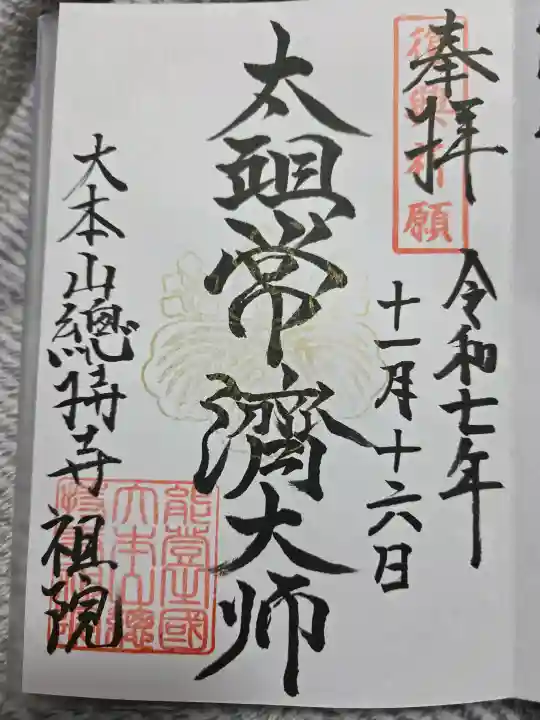 奉拝
復興祈願
令和七年
十一月十六日
太祖常濟大师
大本山總持寺祖院
能登國
大本山總
持寺祖院